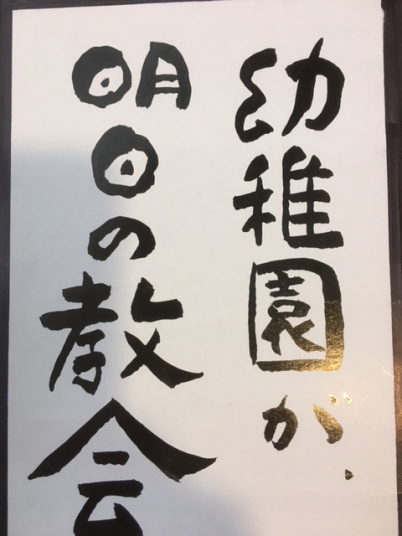 幼稚園が、
明日の教会